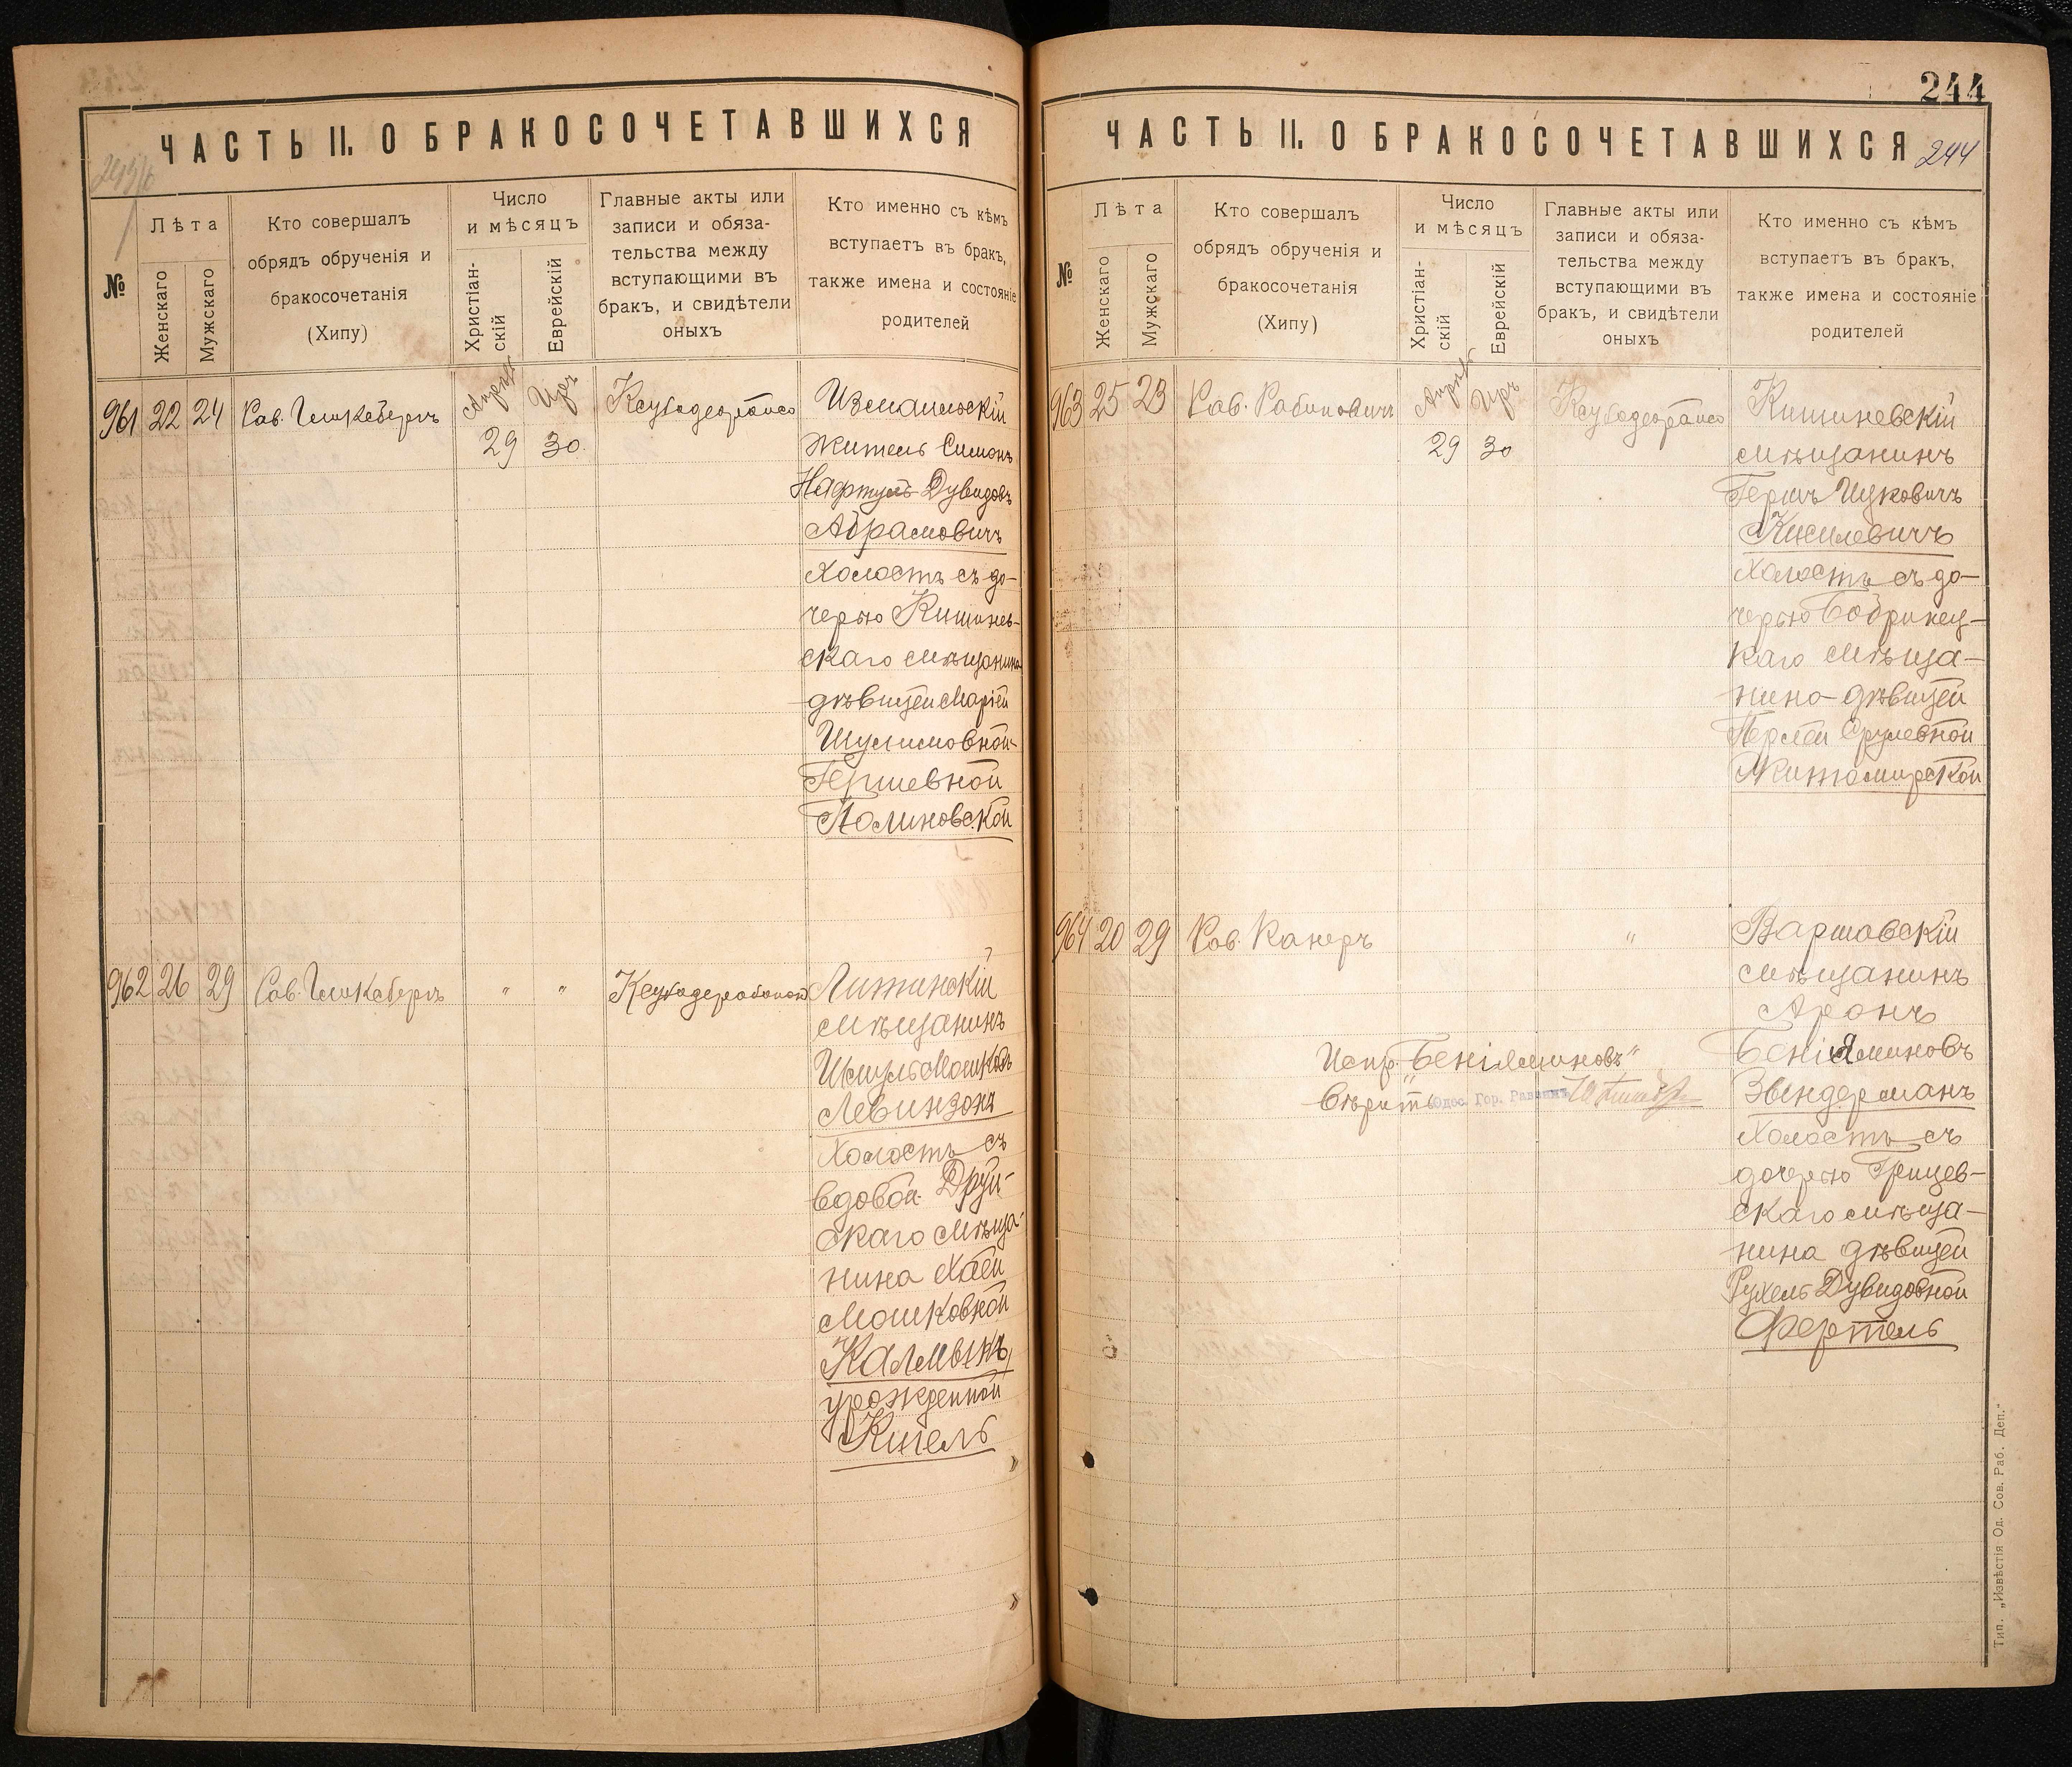 ЧАСТЬ II. О БРАКОСОЧЕТАВШИХСЯ
№
Лѣта
Женскаго
Мужскаго
Кто совершалъ
обрядъ обрученія и
бракосочетанія
(Хипу)
Число
и мѣсяцъ
Христіан-
скій
Еврейскій
Главные акты или
записи и обяза-
тельства между
вступающими въ
бракъ, и свидѣтели
оныхъ
Кто именно съ кѣмъ
вступаетъ въ бракъ,
также имена и состояніе
родителей
961 22 24 Рав.
29 30
Измаильскій
житель Симонъ
Нафтуль Дувидовъ
Абрамовичъ
холостъ съ до-
черью Кишинев-
скаго мѣщанина
дѣвицей Маріей
Шулимовной-
Гершевной
Полиновской
962 26 29 Рав.
" "
Литинскій
мѣщанинъ
Шмуль Мошковъ
Левинзонъ
холостъ съ
вдовой Друй-
скаго мѣща-
нина Хаей
Мошковной
Калмыкъ,
урожденной
Кигель
244
ЧАСТЬ II. О БРАКОСОЧЕТАВШИХСЯ
244
№
Лѣта
Женскаго
Мужскаго
Кто совершалъ
обрядъ обрученія и
бракосочетанія
(Хипу)
Число
и мѣсяцъ
Христіан-
скій
Еврейскій
Главные акты или
записи и обяза-
тельства между
вступающими въ
бракъ, и свидѣтели
оныхъ
Кто именно съ кѣмъ
вступаетъ въ бракъ,
также имена и состояніе
родителей
963 25 23 Рав. Рабиновичъ
Апрѣль Иръ
29 30
Кишиневскій
мѣщанинъ
Гершъ Ицковичъ
Кисилевичъ
холостъ съ до-
черью Бобринец-
каго мѣща-
нина дѣвицей
Перлей Срулевной
Житомирской
964 20 29 Рав. Канеръ
"
Варшавскій
мѣщанинъ
Аронъ
Беніаминовъ
Звендерманъ
холостъ съ
дочерью Грицев-
скаго мѣща-
нина дѣвицей
Рухель Дувидовной
Фертель
Испр. "Беніяминовъ"
вѣрить Одес. Гор. Раввинъ
Тип. „Извѣстія Од. Сов. Раб. Деп."